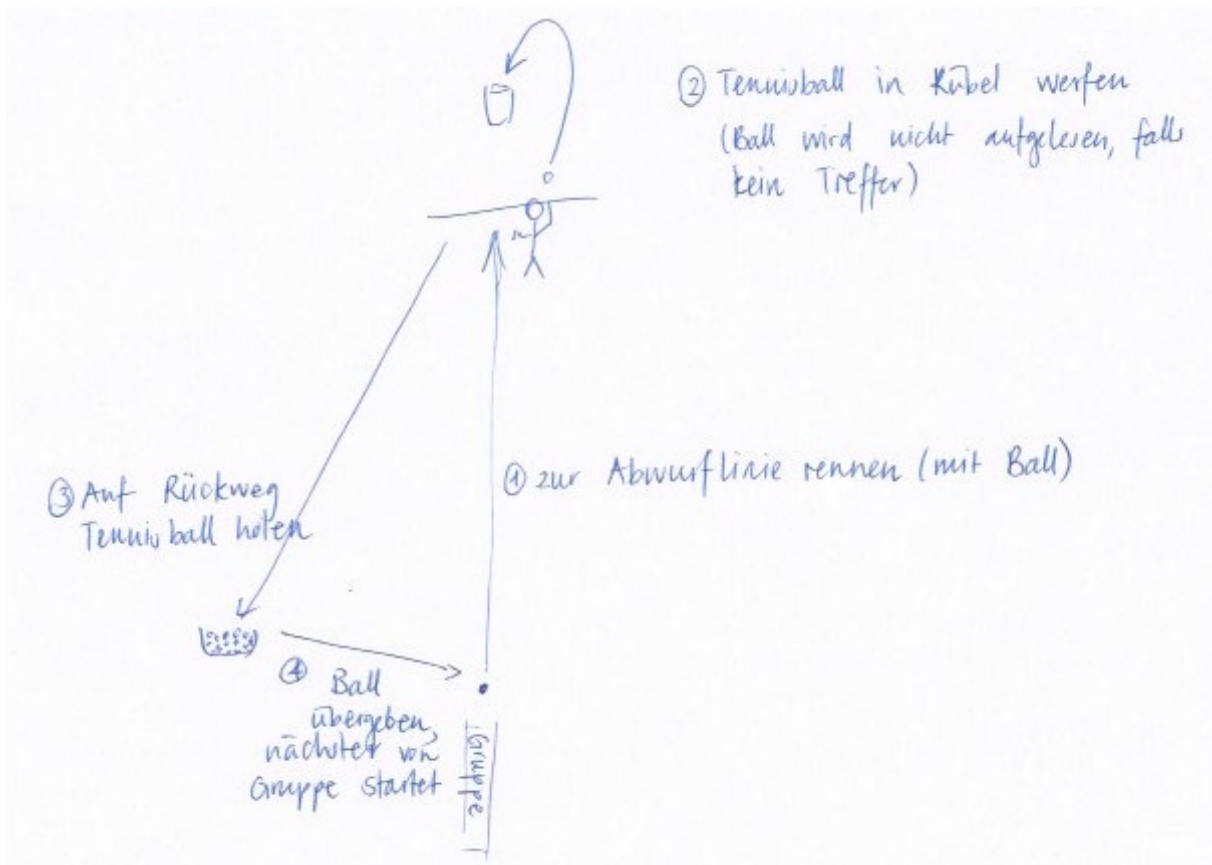 ② Tennisball in Kübel werfen
(Ball wird nicht aufgelesen, falls
kein Treffer)
① zur Abwurflinie rennen (mit Ball)
③ Auf Rückweg
Tennisball holen
④ Ball
übergeben,
nächster von
Gruppe startet
Gruppe